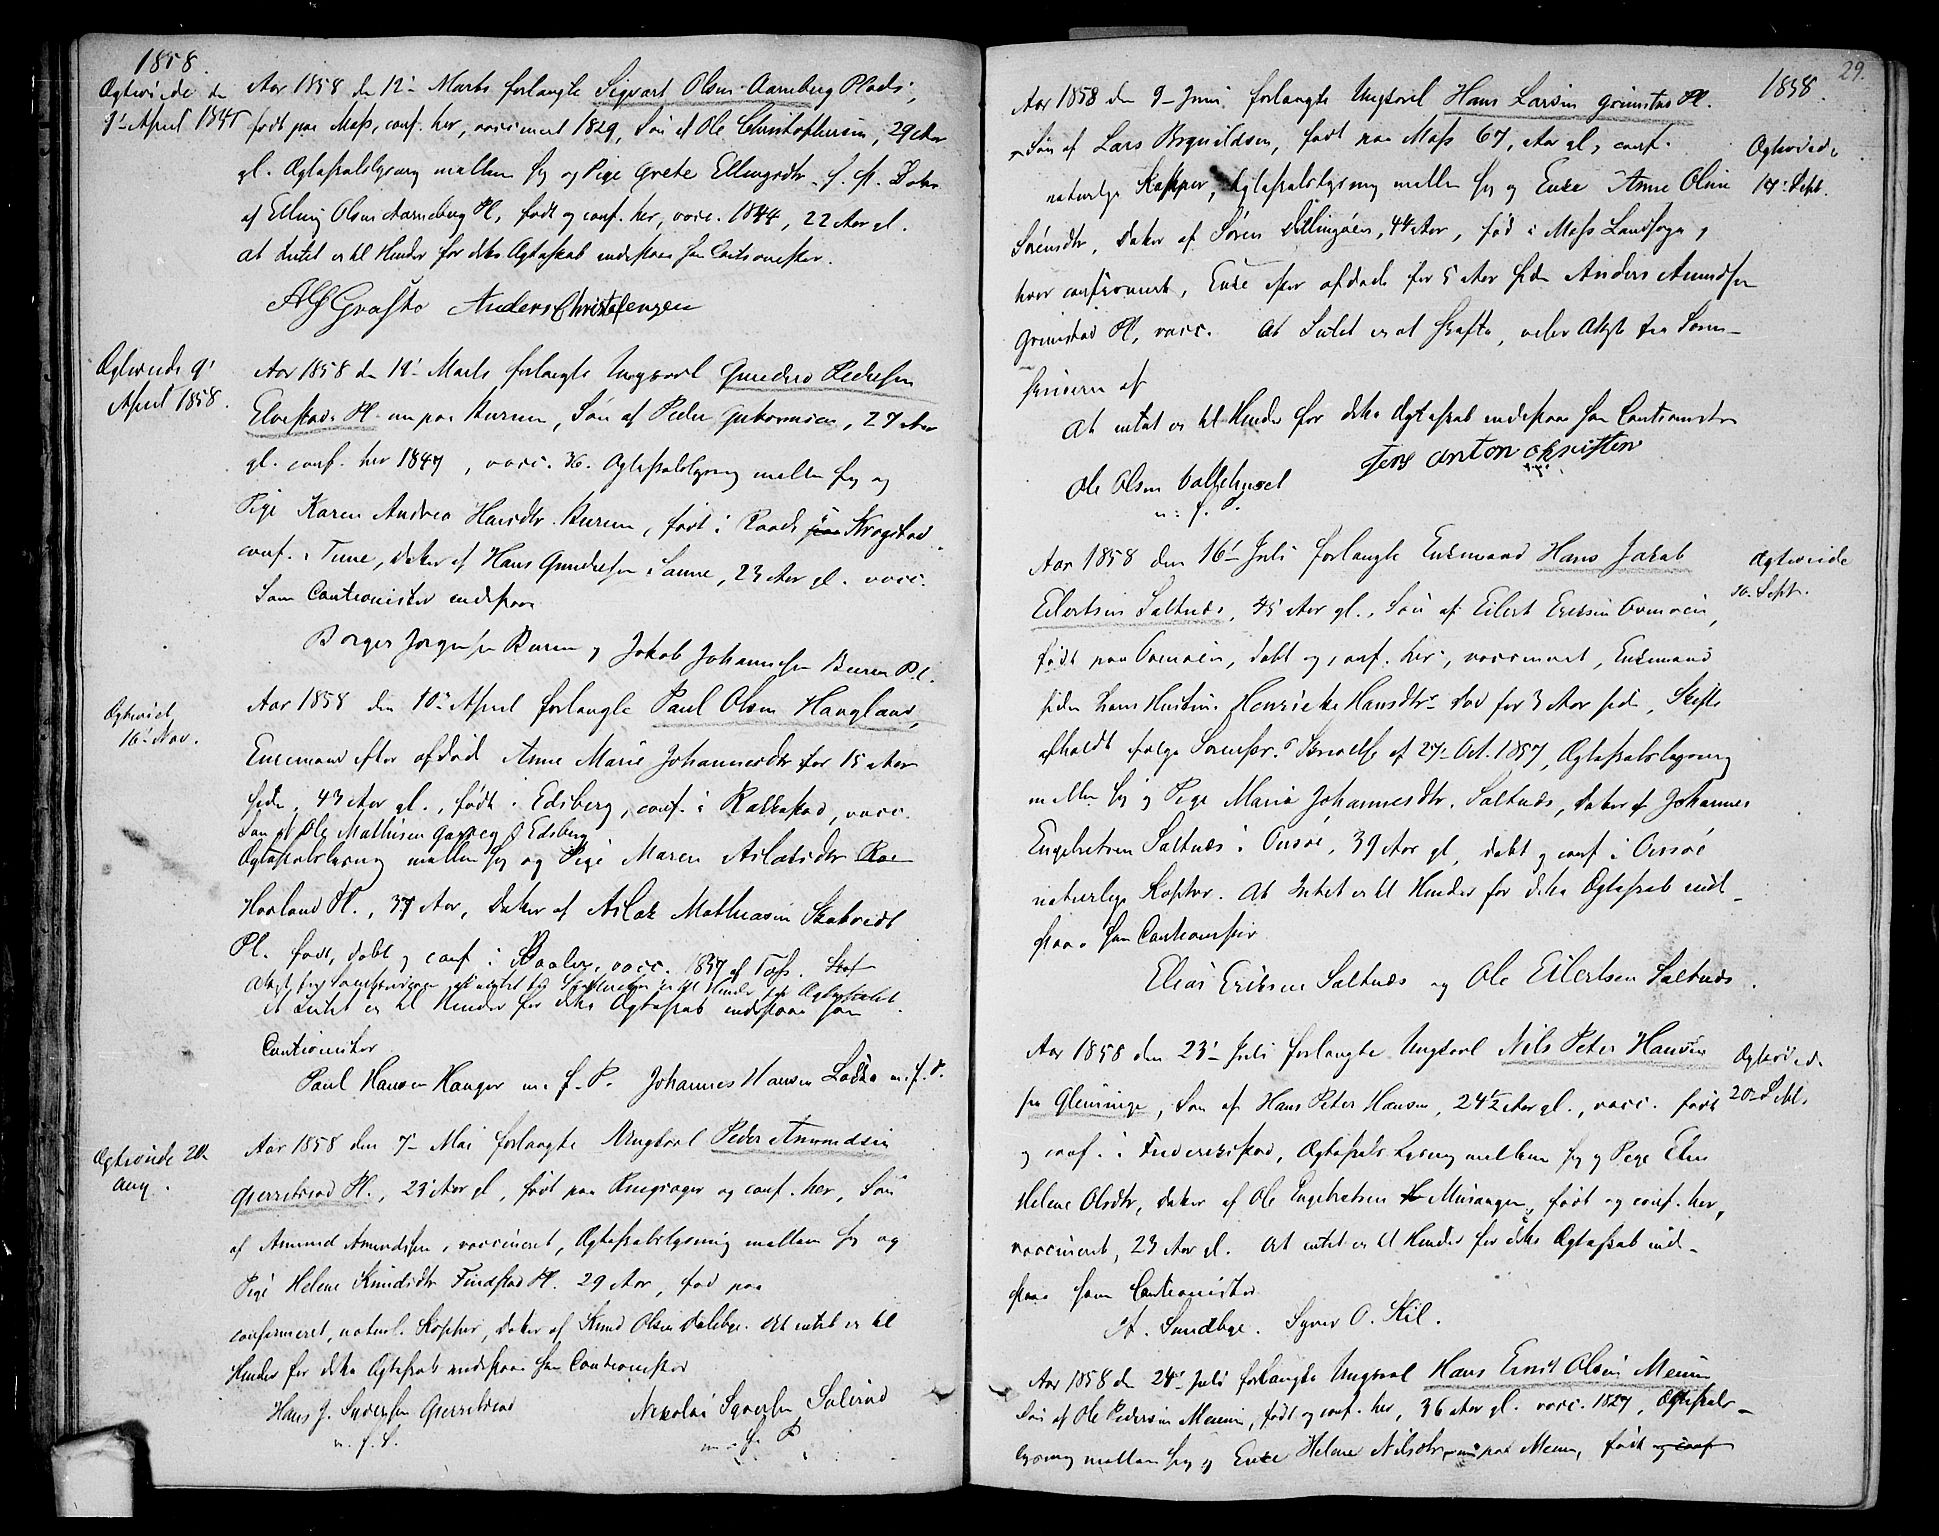 1858.
Ægteviede den
9' April 1858
Aar 1858 den 12' Marts forlangte Sigvart Olsen Aarneberg Plads,
født paa Moss, conf. her, vaccineret 1829, Søn af Ole Christophersen, 29 Aar
gl. Ægteskabslysning mellem sig og Pige Grete Ellingsdtr. s. st. Datter
af Elling Olsen Aarneberg Pl, født og conf. her, vacc. 1844, 22 Aar gl.
At Intet er til Hinder for dette Ægteskab indestaae som Cautionister.
Anders Christofersen
Ægteviede 9'
April 1858.
Aar 1858 den 14' Marts forlangte Ungkarl Gunder Pedersen
Elvestad Pl. nu paa Burum, Søn af Peder, 27 Aar
gl. conf. her 1847, vacc. Ægteskabslysning mellem sig og
Pige Karen Andrea Hansdtr. Burum, født i Raade Krogstad
conf. i Tune, Datter af Hans Gundersen, 23 Aar gl. vacc.
Som Cautionister indestaae
Borger Jørgensen Burum og Jakob Johannesen Burum Pl.
Ægteviet
16' Nov.
Aar 1858 den 10' April forlangte Paul Olsen Haugland,
Enkemand efter afdød Anne Marie Johannesdtr for 15 Aar
siden, 43 Aar gl., født i Edsberg, conf. i Rakkestad, vacc.
Søn af Ole Mathisen i Edsberg
Ægteskabslysning mellem sig og Pige Maren Aslaksdtr
Haaland Pl., 37 Aar, Datter af Aslak Mathiasen
Pl. født, døbt og conf. i Vaaler, vacc. 1837 af
at Intet er til Hinder for dette Ægteskab indestaae som
Cautionister
Paul Hansen Hauger m. f. P. Johannes Hansen m. f. P.
Ægteviede 20de
Aug.
Aar 1858 den 7' Mai forlangte Ungkarl Peder Amundsen
Gjerretsrød Pl., 23 Aar gl, født paa og conf. her, Søn
af Amund Amundsen, vaccineret, Ægteskabslysning mellem sig og
Pige Helene Knudsdtr Findstad Pl. 29 Aar, fød paa
confirmeret, naturl. Kopper, Datter af Knud Olsen Dalebye. At intet er til
Hinder for dette Ægteskab indestaae som Cautionister
Hans J. Syversen Gjerretsrød
m. f. P.
Nikolai Syversen
m. f. P
29.
1858.
Aar 1858 den 9' Juni forlangte Ungkarl Hans Larsen Grimstad Pl.
Søn af Lars, født paa Moss 67, Aar gl, conf.
naturlige Kopper, Ægteskabslysning mellem sig og Enke Anne Oline
Sørensdtr, Datter af Søren Dillingøen, 44 Aar, fød i Moss Landsogn og
hvor confirmeret, Enke efter afdøde for 5 Aar siden Anders Amundsen
Grimstad Pl, vacc. At Intet er at skifte, viser Attest fra Soren-
skriveren af
At intet er til Hinder for dette Ægteskab indestaae som Cautionister
Ægteviede
14' Sept.
Jens Anton
Ole Olsen
m. f. P.
Aar 1858 den 16' Juli forlangte Enkemand Hans Jakob
Eilertsen Saltnæs, 45 Aar gl., Søn af Eilert Eriksen,
født paa, døbt og conf. her, vaccineret, Enkemand
siden hans Hustru Henrikke Hansdtr død for 3 Aar siden, Skifte
afholdt ifølge Sorenskr. Skrivelse af 27' Oct. 1857, Ægteskabslysning
mellem sig og Pige Maria Johannesdtr. Saltnæs, Datter af Johannes
Engebretsen Saltnæs i Onsøe, 39 Aar gl, døbt og conf. i Onsøe
naturlige Kopper. At Intet er til Hinder for dette Ægteskab inde-
staae som Cautionister
Ægteviede
10. Sept.
Elias Eriksen Saltnæs og Ole Eilertsen Saltnæs.
Aar 1858 den 23' Juli forlangte Ungkarl Nils Peter Hansen
fra Glemminge, Søn af Hans Peter Hansen, 24½ Aar gl., vacc. født
og conf. i Frederikstad, Ægteskabs Lysning mellem sig og Pige Elen
Helene Olsdtr, Datter af Ole Engebretsen, født og conf. her,
vaccineret, 23 Aar gl. At intet er til Hinder for dette Ægteskab inde-
staae som Cautionister
Ægteviede
20' Sept.
A. Sundbye. Syver O. Kil.
Aar 1858 den 24' Juli forlangte Ungkarl Hans Ernst Olsen Meum
Søn af Ole Pedersen Meum, født og conf. her, 36 Aar gl. vacc. 1827, Ægteskabs-
lysning mellem sig og Enke Helene Nilsdtr, nu paa Meum, født og conf